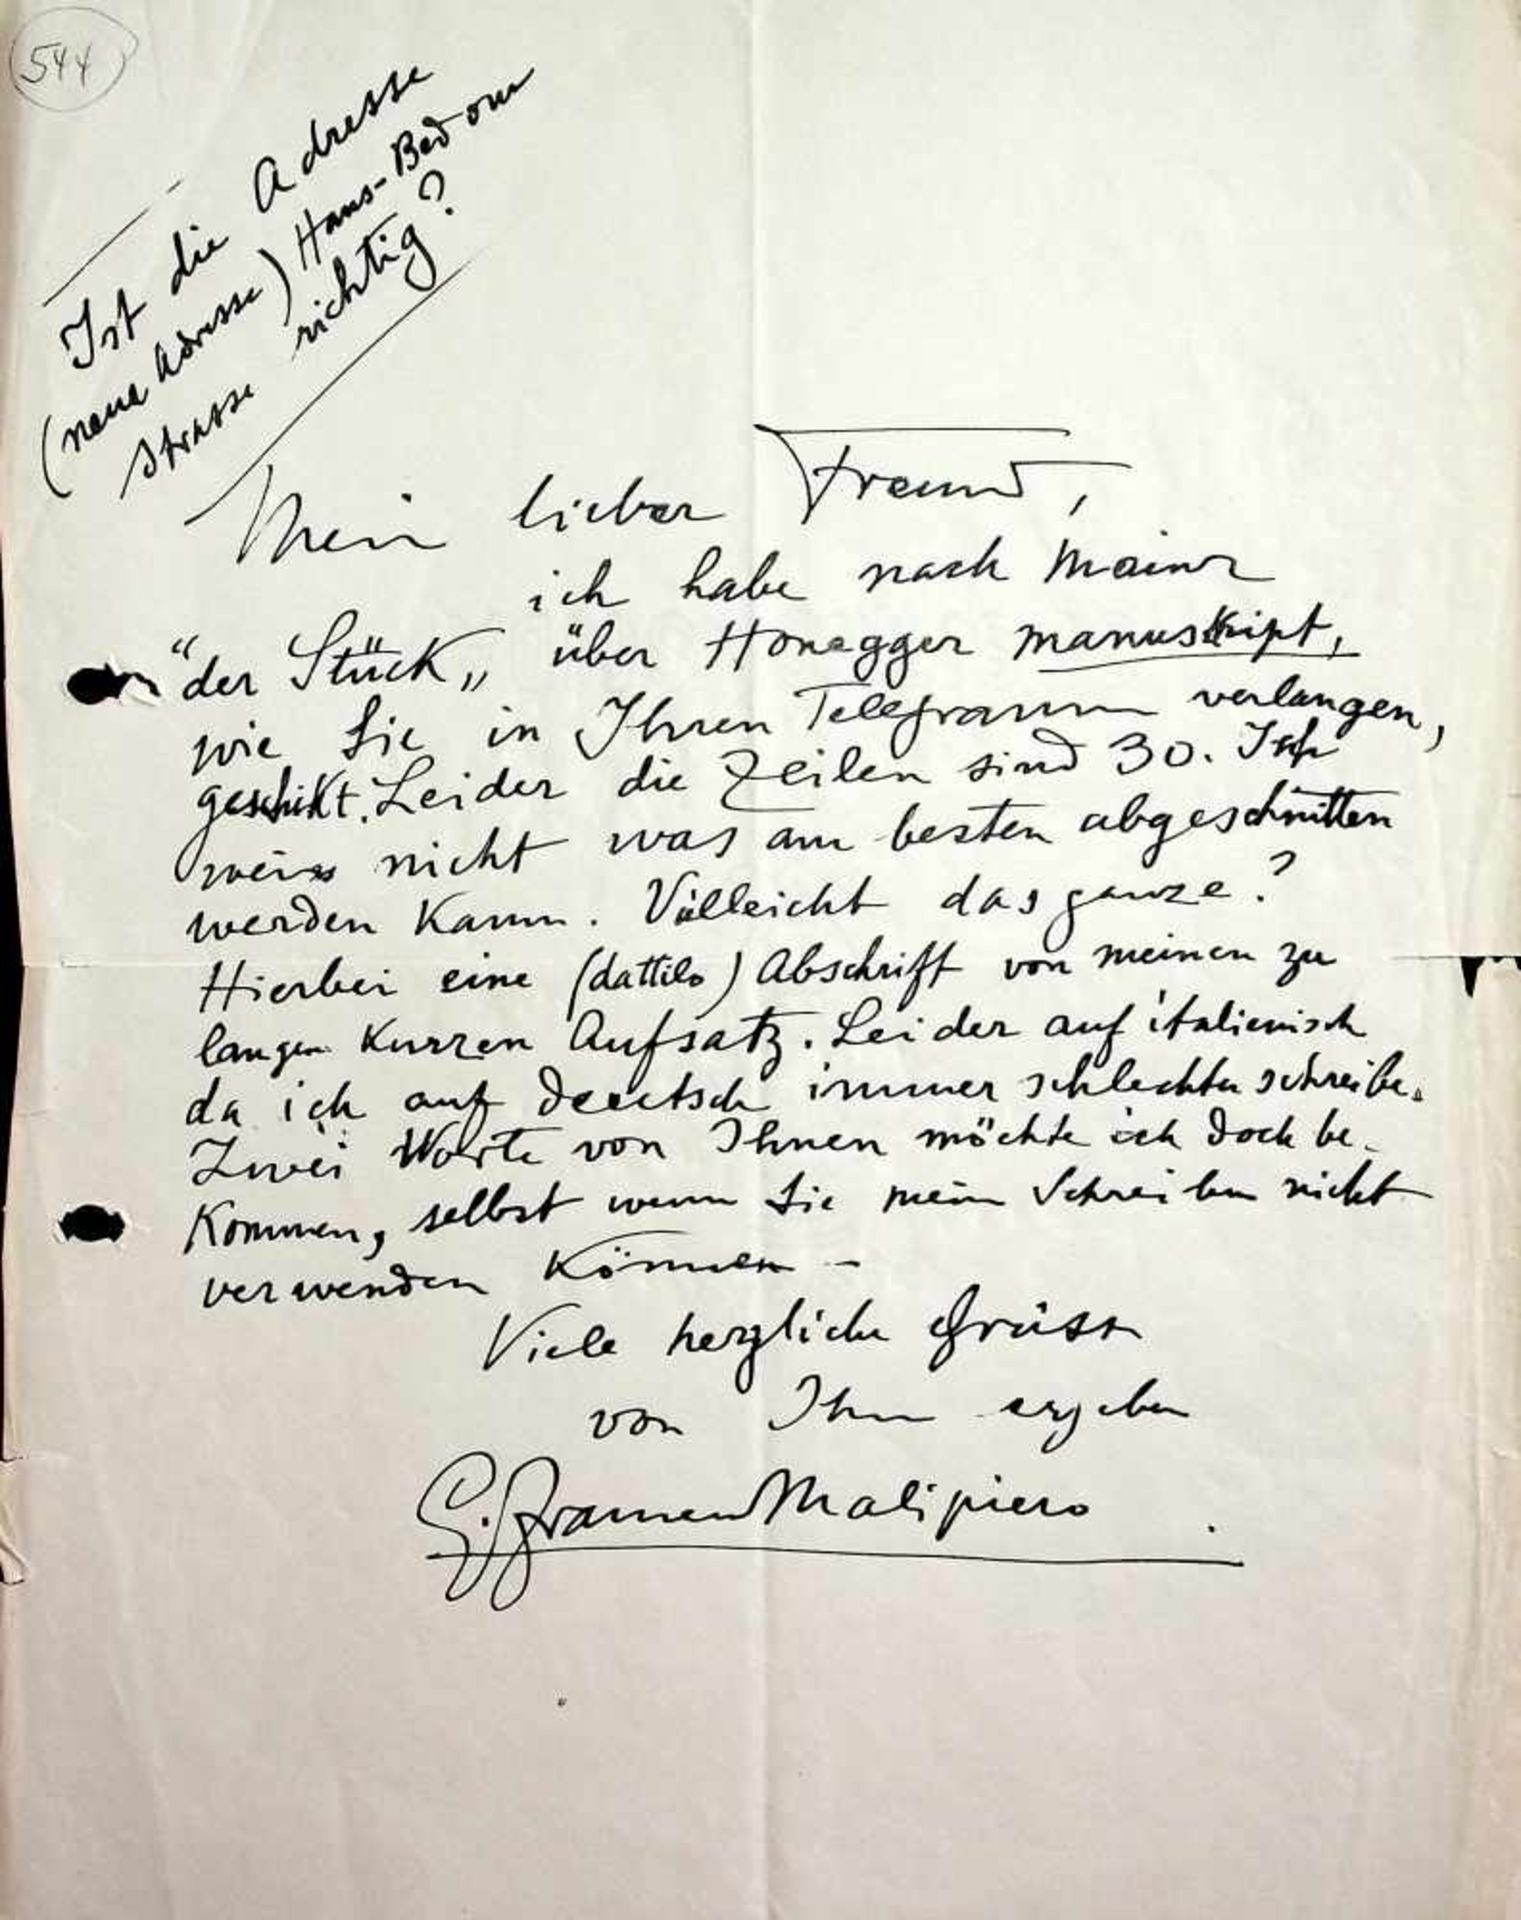 544
Ist die Adresse
(neue Adresse) Hans-Bredow
Strasse richtig?
Mein lieber Freund,
ich habe nach Mainz
"der Stück„ über Honegger manuskript,
wie Sie in Ihren Telegramm verlangen,
geschikt. Leider die Zeilen sind 30. Ich
weiss nicht was am besten abgeschnitten
werden kann. Villeicht das ganze?
Hierbei eine (dattilo) Abschrift von meinen zu
langen kurzen Aufsatz. Leider auf italienisch
da ich auf deutsch immer schlechter schreibe.
Zwei Worte von Ihnen möchte ich doch be-
kommen, selbst wenn Sie mein Schreiben nicht
verwenden können –
Viele herzliche Grüsse
von Ihren ergeben
G. Francesco Malipiero